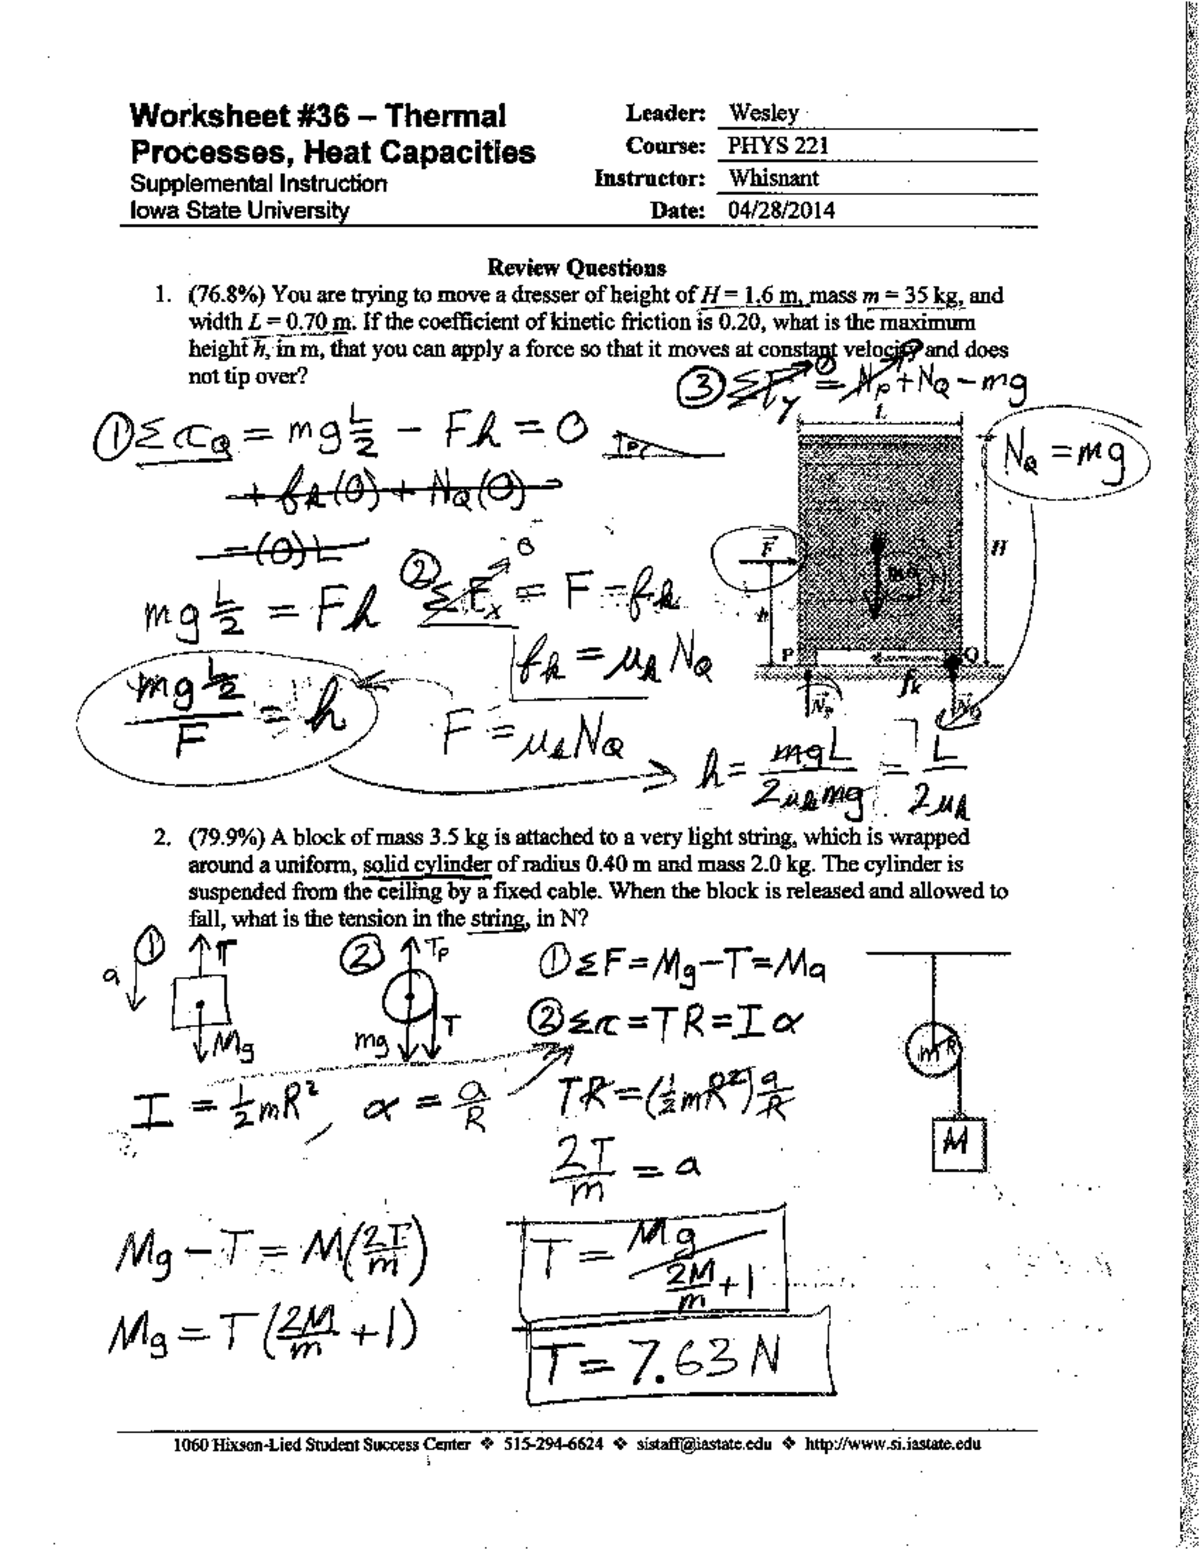 Worksheet #36 – Thermal
Processes, Heat Capacities
Supplemental Instruction
Iowa State University
Leader: Wesley
Course: PHYS 221
Instructor: Whisnant
Date: 04/28/2014
Review Questions
1. (76.8%) You are trying to move a dresser of height of H = 1.6 m, mass m = 35 kg, and
width L = 0.70 m. If the coefficient of kinetic friction is 0.20, what is the maximum
height h, in m, that you can apply a force so that it moves at constant velocity and does
not tip over?
③ ΣF_y = N_P + N_Q – mg
① Στ_Q = mg L/2 – Fh = 0
+ f_k(0) + N_Q(0)
= (0)L
N_Q = mg
L
H
F
mg
h
P
Q
f_k
N_P
N_Q
mg L/2 = Fh
② ΣF_x = F – f_k
f_k = μ_k N_Q
mg L/2 / F = h
F = μ_k N_Q
h = mgL / 2μ_k mg = L / 2μ_k
2. (79.9%) A block of mass 3.5 kg is attached to a very light string, which is wrapped
around a uniform, solid cylinder of radius 0.40 m and mass 2.0 kg. The cylinder is
suspended from the ceiling by a fixed cable. When the block is released and allowed to
fall, what is the tension in the string, in N?
① T
a
Mg
② T_P
T
mg
① ΣF = Mg – T = Ma
② Στ = TR = Iα
m R
M
I = 1/2 mR², α = a/R
TR = (1/2 mR²) a/R
2T/m = a
Mg – T = M(2T/m)
T = Mg / (2M/m + 1)
Mg = T(2M/m + 1)
T = 7.63 N
1060 Hixson-Lied Student Success Center ❖ 515-294-6624 ❖ sistaff@iastate.edu ❖ http://www.si.iastate.edu